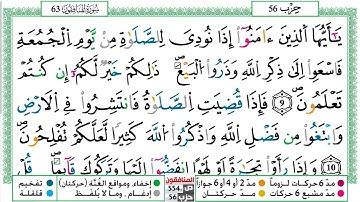 حزب 56 سُورَةُ المنافقون 63
يَٰٓأَيُّهَا ٱلَّذِينَ ءَامَنُوٓا۟ إِذَا نُودِىَ لِلصَّلَوٰةِ مِن يَوْمِ ٱلْجُمُعَةِ
فَٱسْعَوْا۟ إِلَىٰ ذِكْرِ ٱللَّهِ وَذَرُوا۟ ٱلْبَيْعَ ۚ ذَٰلِكُمْ خَيْرٌ لَّكُمْ إِن كُنتُمْ
تَعْلَمُونَ 9 فَإِذَا قُضِيَتِ ٱلصَّلَوٰةُ فَٱنتَشِرُوا۟ فِى ٱلْأَرْضِ
وَٱبْتَغُوا۟ مِن فَضْلِ ٱللَّهِ وَٱذْكُرُوا۟ ٱللَّهَ كَثِيرًا لَّعَلَّكُمْ تُفْلِحُونَ
10 وَإِذَا رَأَوْا۟ تِجَٰرَةً أَوْ لَهْوًا ٱنفَضُّوٓا۟ إِلَيْهَا وَتَرَكُوكَ قَآئِمًا ۚ قُلْ
مدّ 6 حركات لزوماً مدّ 2 أو 4 أو 6 جوازاً إخفاء، ومواقع الغُنَّة (حركتان) تفخيم
مدّ مشبع 6 حركات مدّ حركتان إدغام، وما لا يُلفَظ قلقلة
المنافقون
ص 554
حزب 56